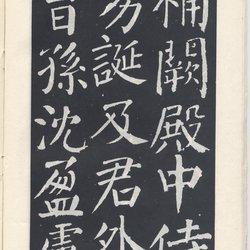 補闕殿中侍
誕及君外
孫沈盈